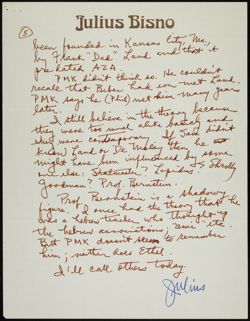 Julius Bisno
5
been founded in Kansas City, Mo.,
by Frank "Dad" Land and that it
pre-dated AZA.
PMK didn't think so. He couldn't
recall that Beber had ever met Land.
PMK says he (PMK) met him many years
later.
I still believe in the theory because
they were too much alike basically and
they were contemporary. If Sam didn't
know Land or De Molay then he
have been influenced by some
one else:
Goodman? Prof. Bernstein.
Prof. Bernstein is a shadowy
figure. I once had the theory that he
was a hebrew teacher who thought of
the hebrew association; name etc.
But PMK doesn't seem to remember
him; neither does Ethel.
I'll call others today.
Julius